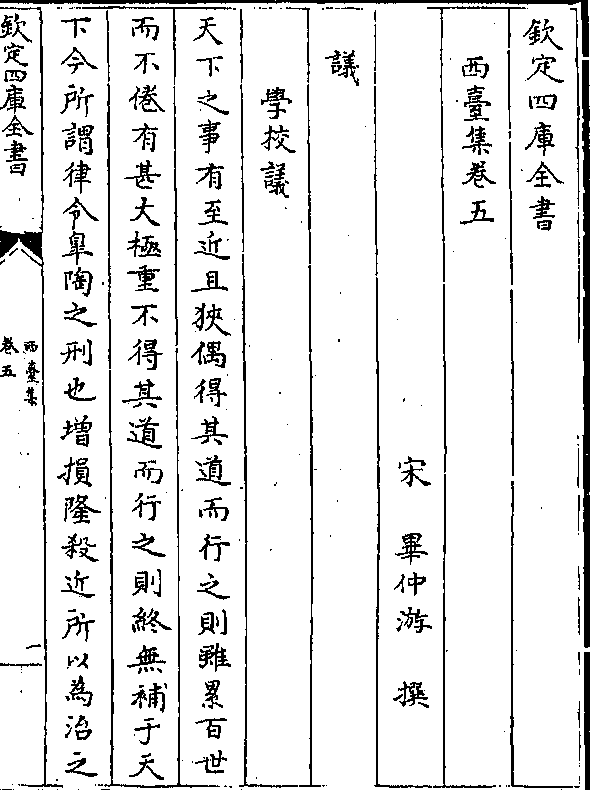 欽定四庫全書
西臺集卷五
宋 畢仲游 撰
議
學校議
天下之事有至近且狹偶得其道而行之則雖累百世
而不倦有甚大極重不得其道而行之則終無補于天
下今所謂律令臯陶之刑也增損隆殺近所以為治之
欽定四庫全書
西臺集
卷五
一